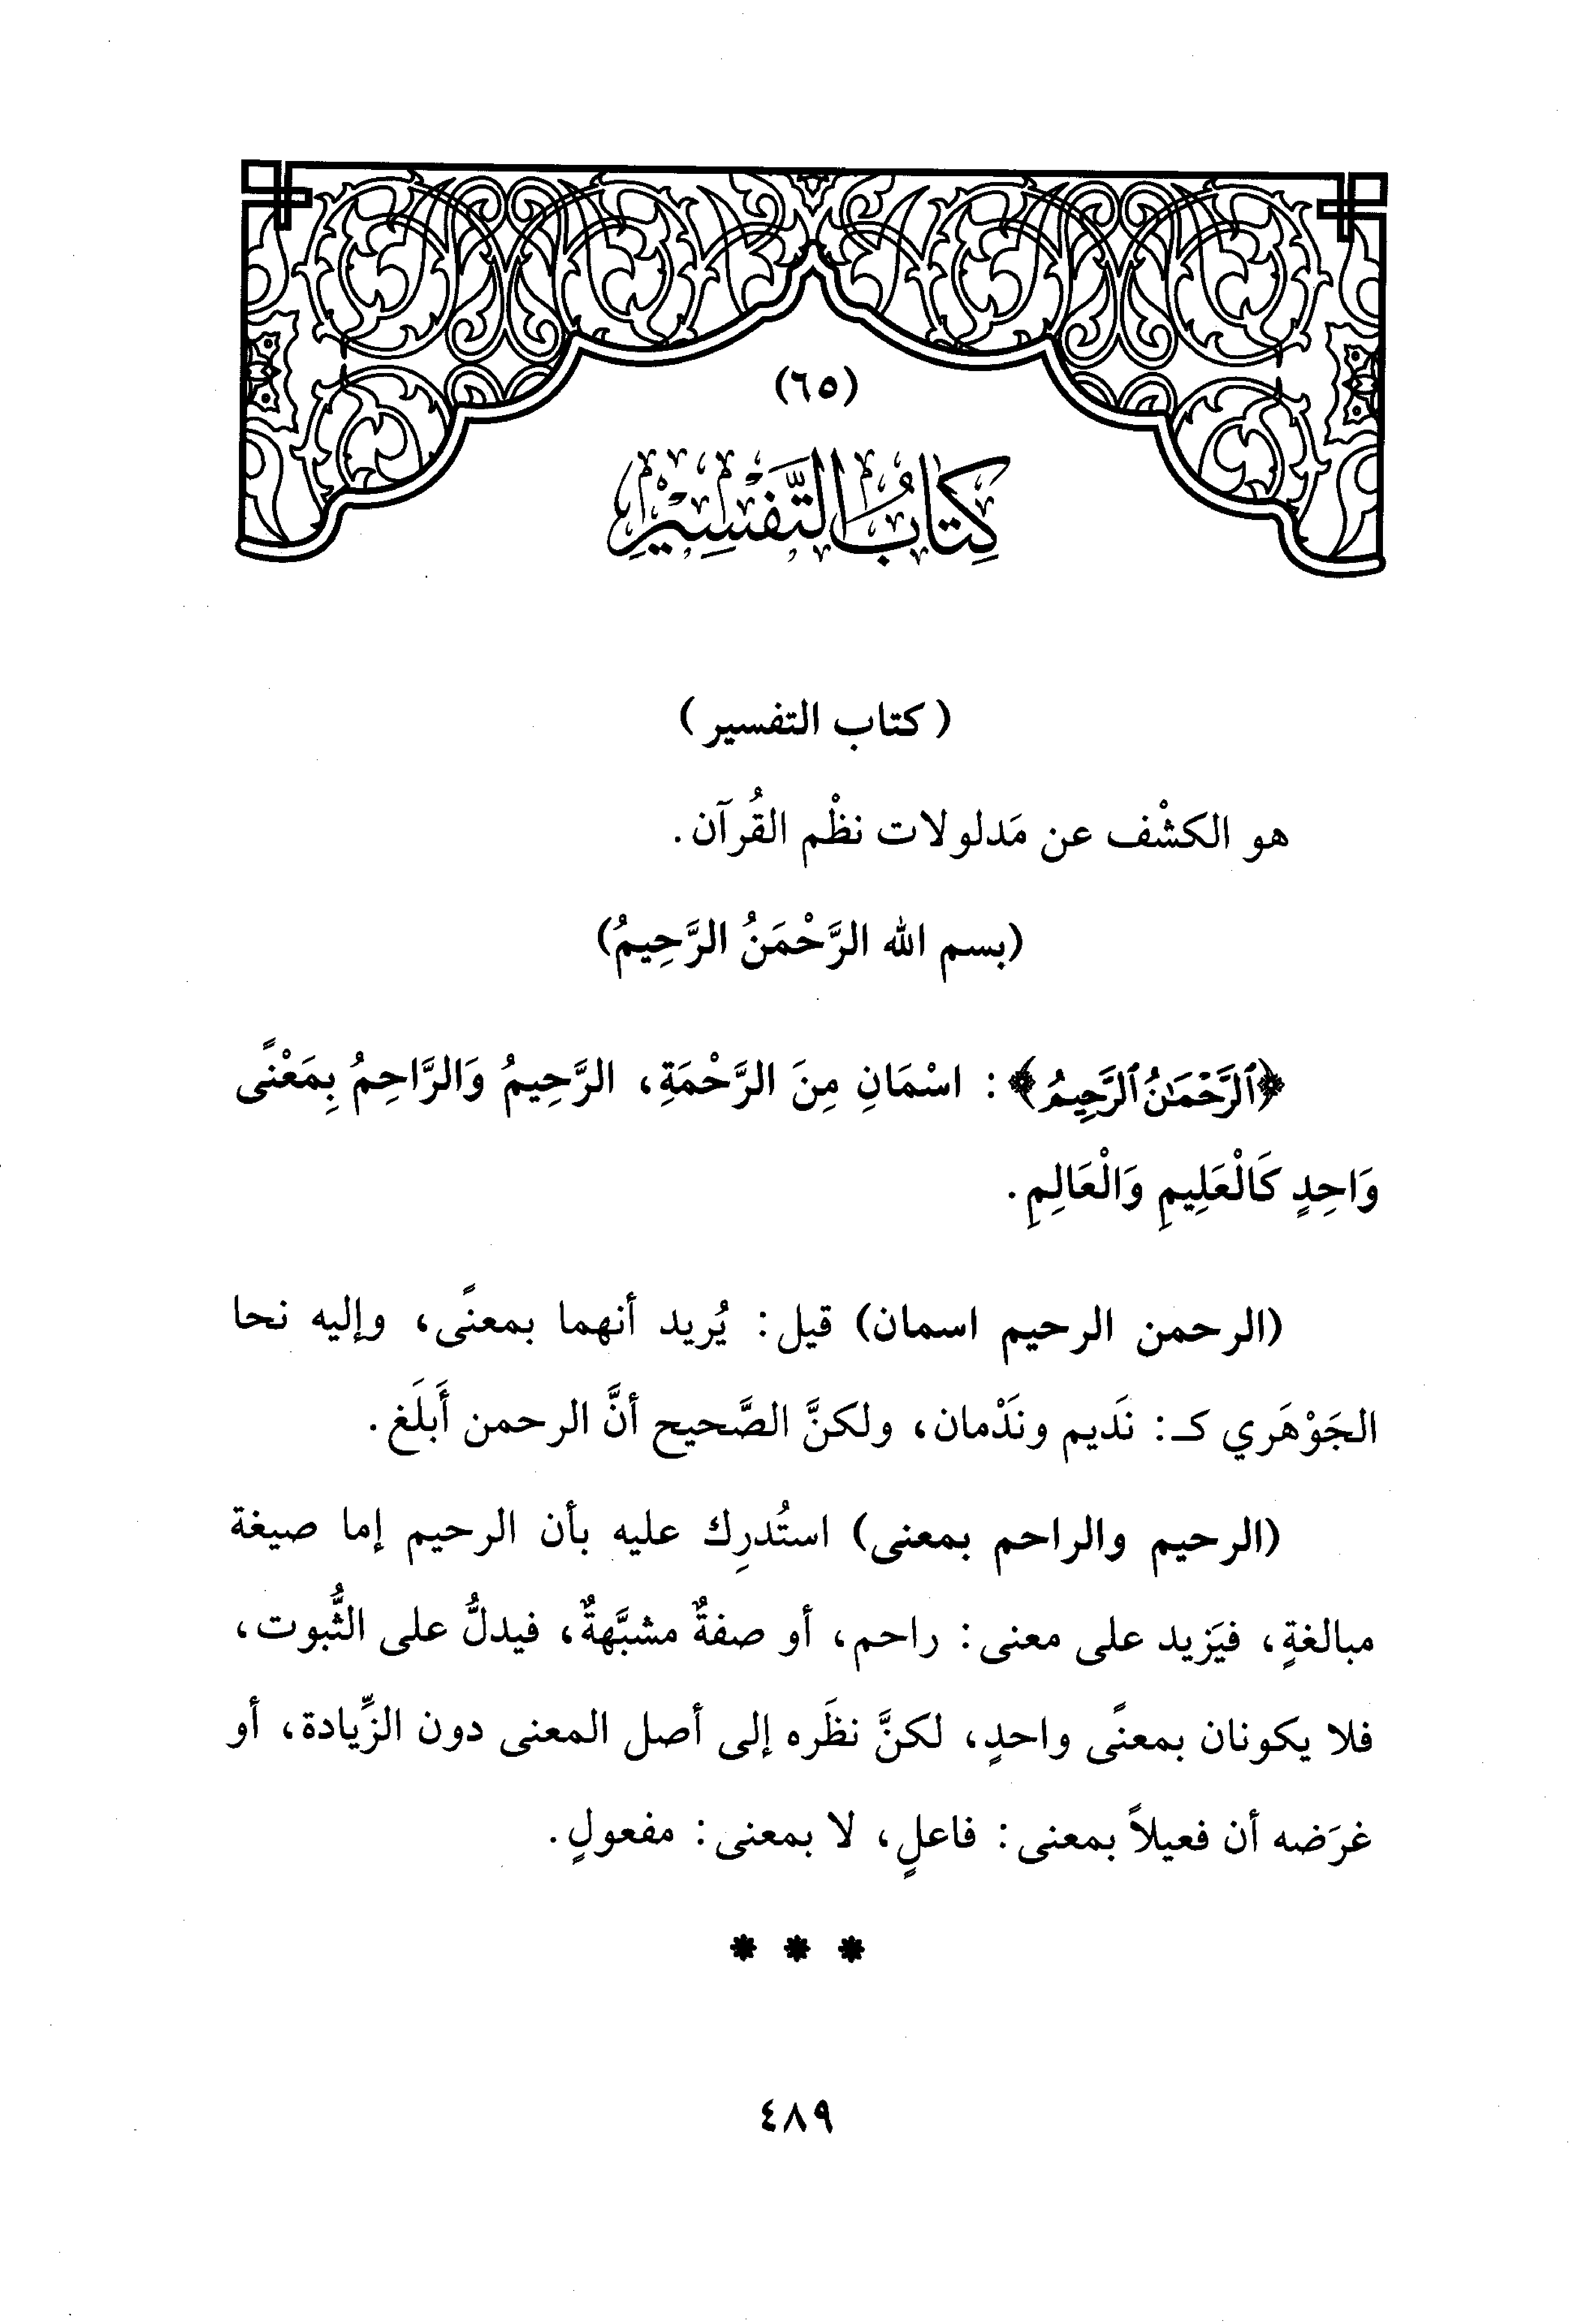 (٦٥)
كِتَابُ التَّفْسِيْرِ
(كتاب التفسير)
هو الكشْف عن مَدلولات نظْم القُرآن.
(بسم الله الرَّحْمَنُ الرَّحِيمُ)
﴿ٱلرَّحْمَٰنُ ٱلرَّحِيمُ﴾: اسْمَانِ مِنَ الرَّحْمَةِ، الرَّحِيمُ وَالرَّاحِمُ بِمَعْنًى
وَاحِدٍ كَالْعَلِيمِ وَالْعَالِمِ.
(الرحمن الرحيم اسمان) قيل: يُريد أنهما بمعنًى، وإليه نحا
الجَوْهَري كـ: نَديم ونَدْمان، ولكنَّ الصَّحيح أنَّ الرحمن أَبلَغ.
(الرحيم والراحم بمعنى) استُدرِك عليه بأن الرحيم إما صيغة
مبالغةٍ، فيَزيد على معنى: راحم، أو صفةٌ مشبَّهةٌ، فيدلُّ على الثُّبوت،
فلا يكونان بمعنًى واحدٍ، لكنَّ نظَره إلى أصل المعنى دون الزِّيادة، أو
غرَضه أن فعيلاً بمعنى: فاعلٍ، لا بمعنى: مفعولٍ.
* * *
٤٨٩